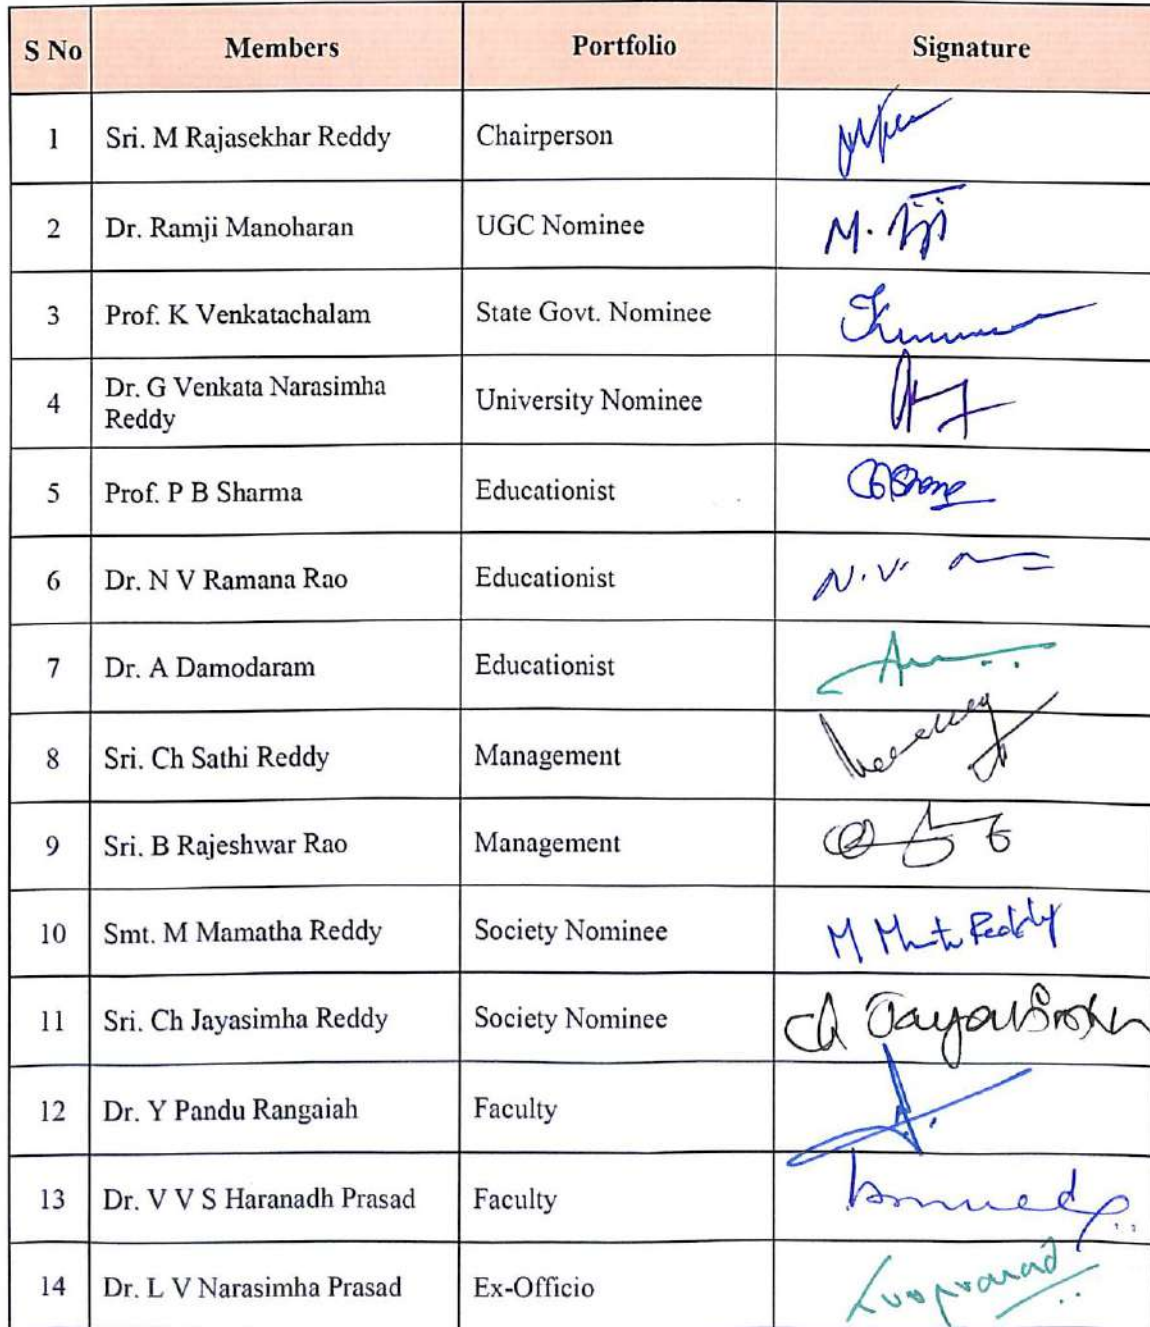 S No Members Portfolio Signature
1 Sri. M Rajasekhar Reddy Chairperson
2 Dr. Ramji Manoharan UGC Nominee M.
3 Prof. K Venkatachalam State Govt. Nominee
4 Dr. G Venkata Narasimha
Reddy University Nominee
5 Prof. P B Sharma Educationist
6 Dr. N V Ramana Rao Educationist N.V.
7 Dr. A Damodaram Educationist
8 Sri. Ch Sathi Reddy Management
9 Sri. B Rajeshwar Rao Management
10 Smt. M Mamatha Reddy Society Nominee M Reddy
11 Sri. Ch Jayasimha Reddy Society Nominee
12 Dr. Y Pandu Rangaiah Faculty
13 Dr. V V S Haranadh Prasad Faculty
14 Dr. L V Narasimha Prasad Ex-Officio